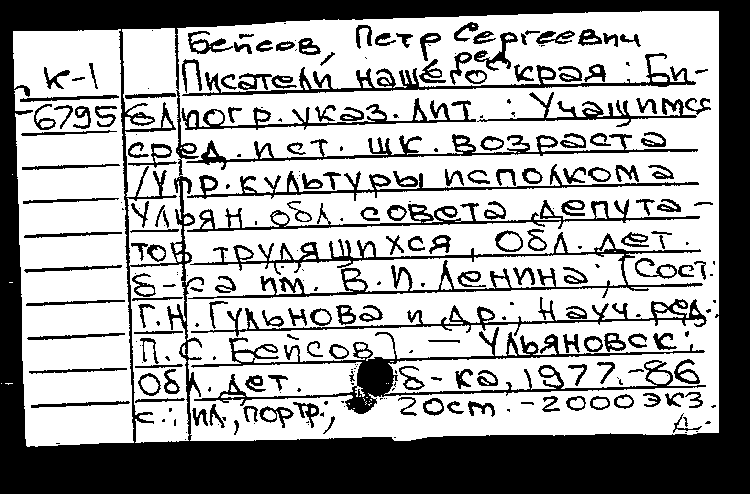 Бейсов, Петр Сергеевич
ред.
К-1 Писатели нашего края : Би-
6795 блиогр. указ. лит. : Учащимся
сред. и ст. шк. возраста
/Упр. культуры исполкома
Ульян. обл. совета депута-
тов трудящихся, Обл. дет.
б-ка им. В. И. Ленина; [Сост.:
Г. Н. Гульнова и др.; Науч. ред.:
П. С. Бейсов]. — Ульяновск:
Обл. дет. б-ка, 1977. - 86
с.: ил., портр.; 20 см. - 2000 экз.